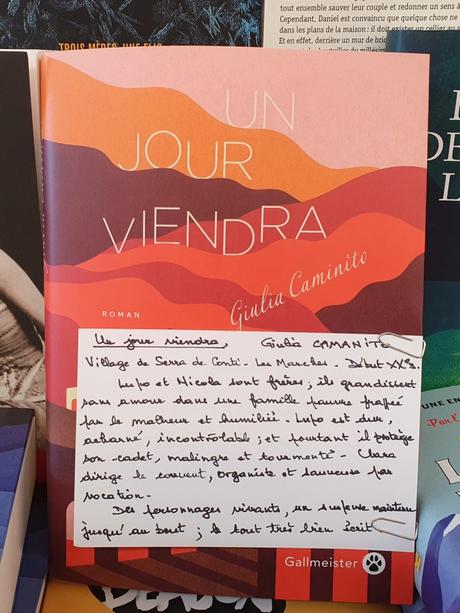 TROIS MÈRES, UNE FILLE
tout ensemble sauver leur couple et redonner un sens à
Cependant, Daniel est convaincu que quelque chose ne
dans les plans de la maison : il doit exister un cellier au s
Et en effet, derrière un mur de briq
UN
JOUR
VIENDRA
Giulia Caminito
ROMAN
Un jour viendra, Giulia CAMANITO
Village de Serra de Conti - Les Marches - Début XXe.
Lupo et Nicola sont frères ; ils grandissent
sans amour dans une famille pauvre frappée
par le malheur et humiliée. Lupo est dur,
acharné, incontrôlable ; et pourtant il protège
son cadet, malingre et tourmenté - Clara
dirige le couvent, organiste et sauveuse par
vocation -
Des personnages vivants, un suspense maintenu
jusqu'au bout ; le tout très bien écrit
Gallmeister
UNE EN